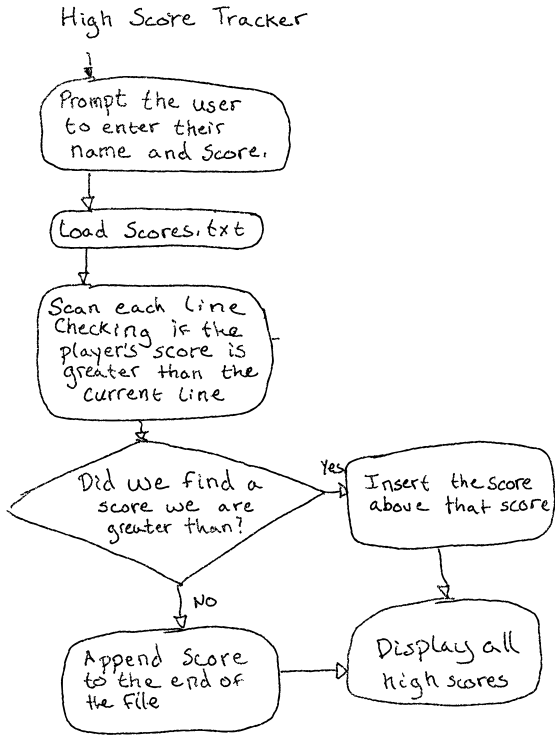 High Score Tracker
Prompt the user
to enter their
name and score.
Load Scores.txt
Scan each line
Checking if the
player's score is
greater than the
current line
Did we find a
score we are
greater than?
Yes
Insert the score
above that score
No
Append score
to the end of
the file
Display all
high scores